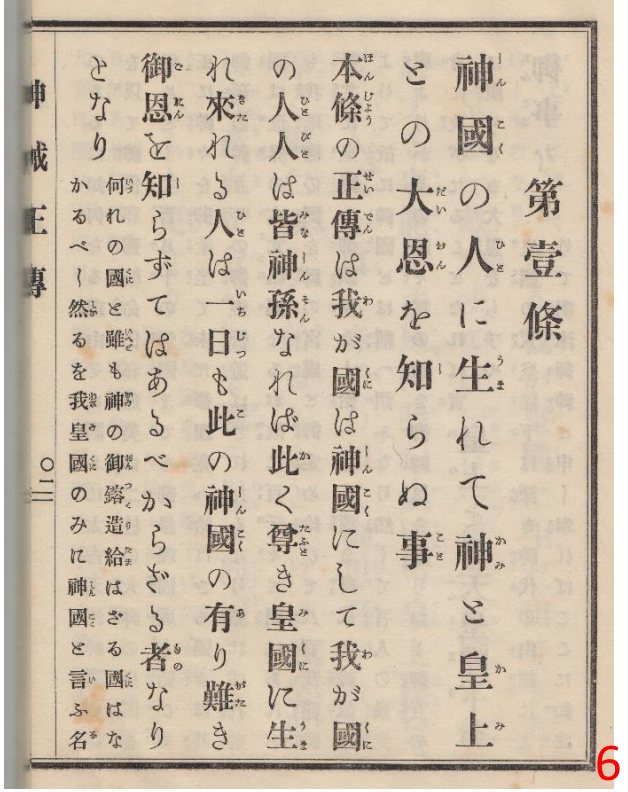 第壹條
神國の人に生れて神と皇上
との大恩を知らぬ事
本條の正傳は我が國は神國にして我が國
の人人は皆神孫なれば此く尊き皇國に生
れ來れる人は一日も此の神國の有り難き
御恩を知らずてはあるべからざる者なり
となり
何れの國と雖も神の御鎔造給はざる國はな
かるべし然るを我皇國のみに神國と言ふ名
神誡正傳
〇二
6